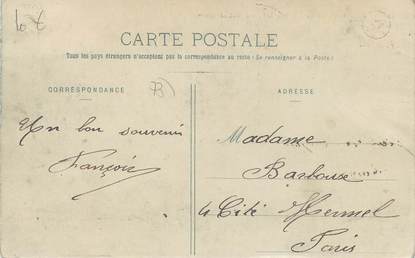 10 €
CARTE POSTALE
Tous les pays étrangers n'acceptent pas la correspondance au recto (Se renseigner à la Poste)
CORRESPONDANCE
ADRESSE
Un bon souvenir
François
Madame
Barbouse
4 Cité Hermel
Paris